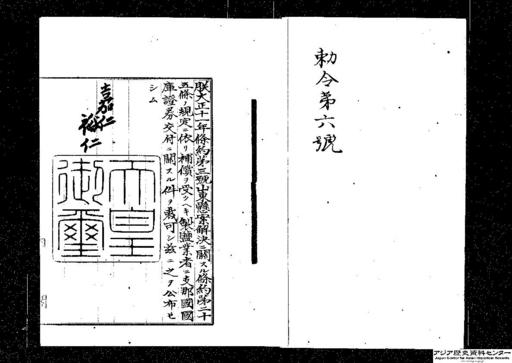 勅令第六號
朕大正十一年條約第三號山東懸案解決ニ關スル條約第二十
五條ノ規定ニ依リ補償ヲ受クヘキ製鹽業者ニ支那國國
庫證券交付ニ關スル件ヲ裁可シ茲ニ之ヲ公布セ
シム
嘉仁
裕仁
天皇
御璽
アジア歴史資料センター
Japan Center for Asian Historical Records